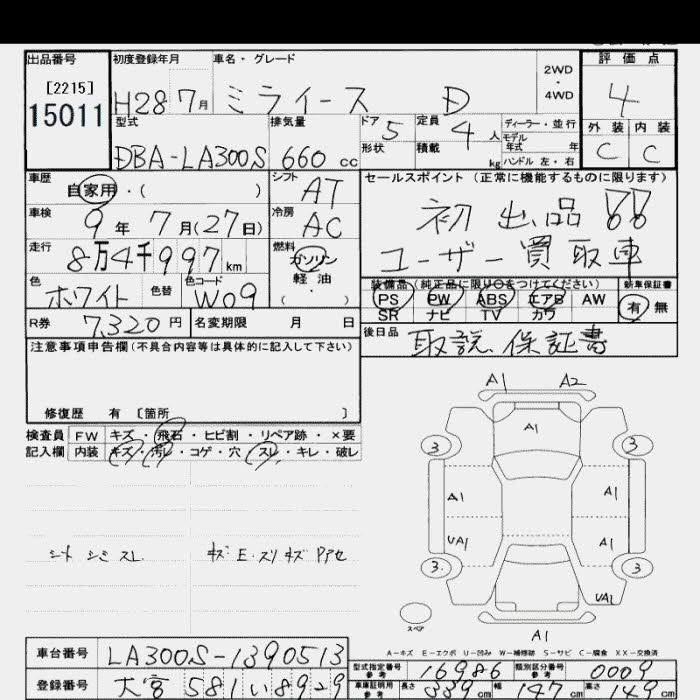 出品番号 初度登録年月 車名・グレード 2WD・4WD 評価点
[2215]
15011 H28 7月 ミライース D 4
型式 排気量 ドア 5 定員 4人 ディーラー・並行 外装 内装
モデル年式 年
DBA-LA300S 660cc 形状 積載 kg ハンドル 左・右 C C
車歴 自家用・( ) シフト AT セールスポイント (正常に機能するものに限ります)
車検 9年 7月(27日) 冷房 AC 初出品!!
走行 8万4千997km 燃料 ガソリン 軽油 ( ・ ) ユーザー買取車
色 ホワイト 色替 色コード W09 装備品 (純正品に限り○をつけてください) 新車保証書
PS PW ABS エアB AW 有 無
SR ナビ TV カワ
R券 7,320円 名変期限 月 日 後日品 取説、保証書
注意事項申告欄(不具合内容等は具体的に記入して下さい)
修復歴 有 [箇所 ]
検査員 FW キズ・飛石・ヒビ割・リペア跡・×要
記入欄 内装 キズ・汚レ・コゲ・穴・スレ・キレ・破レ
A1 A2
A1
3 3
A1 A1
UA1 A1
3 3
UA1
スペア
A1
シート シミ スレ キズ E・スリキズ Pアセ
A-キズ E-エクボ U-凹み W-補修跡 S-サビ C-腐食 XX-交換済
車台番号 LA300S-1390513 型式指定番号 参考 16986 類別区分番号 参考 0009
登録番号 大宮 581 い 8929 車庫証明用 参考 長さ 339cm 幅 147cm 高さ 149cm